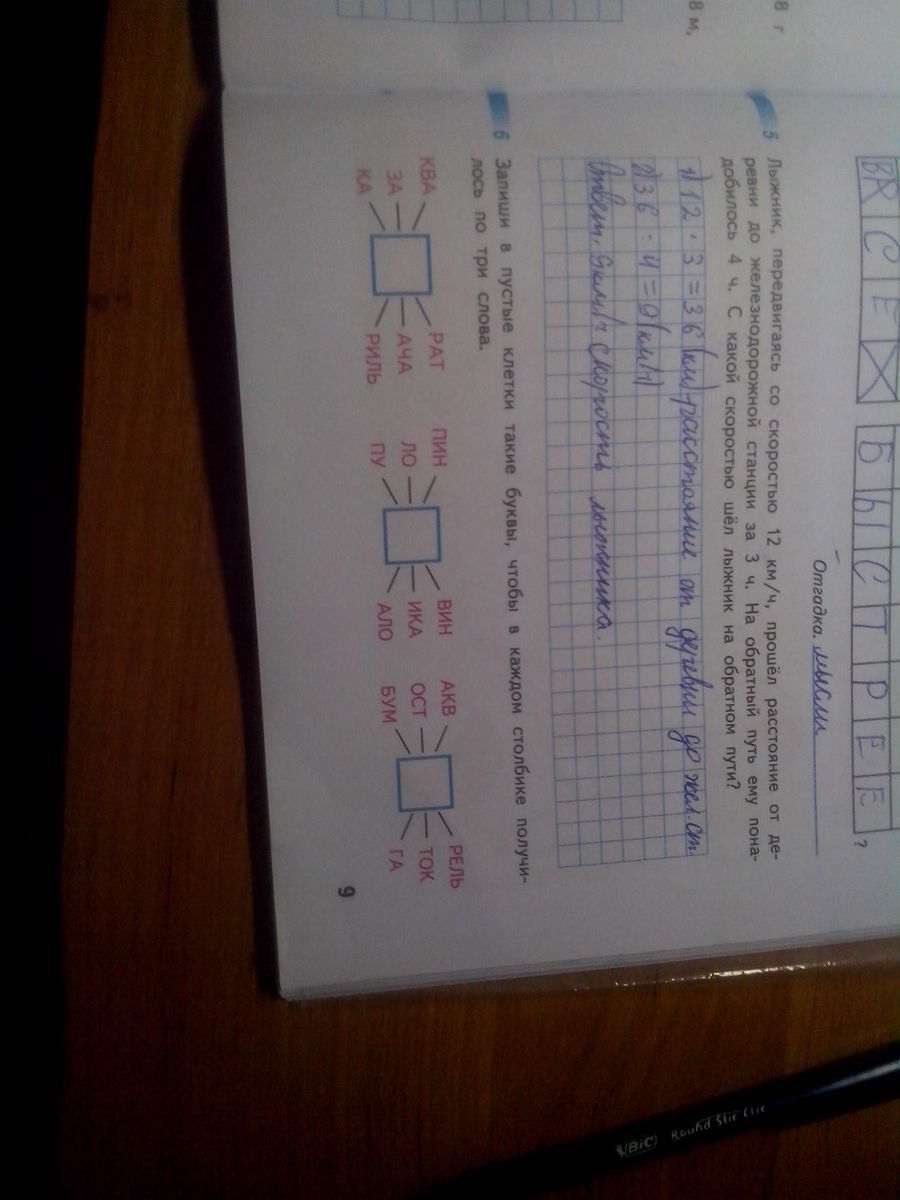 8 г
8 м,
ВСЕХ БЫСТРЕЕ?
Отгадка. мысли
5 Лыжник, передвигаясь со скоростью 12 км/ч, прошёл расстояние от де-
ревни до железнодорожной станции за 3 ч. На обратный путь ему пона-
добилось 4 ч. С какой скоростью шёл лыжник на обратном пути?
1) 12 · 3 = 36 (км)-расстояние от деревни до жел.ст.
2) 36 : 4 = 9 (км/ч)
Ответ. 9 км/ч скорость лыжника.
6 Запиши в пустые клетки такие буквы, чтобы в каждом столбике получи-
лось по три слова.
КВА РАТ ПИН ВИН АКВ РЕЛЬ
ЗА АЧА ЛО ИКА ОСТ ТОК
КА РИЛЬ ПУ АЛО БУМ ГА
9
BIC Round Stic Clic